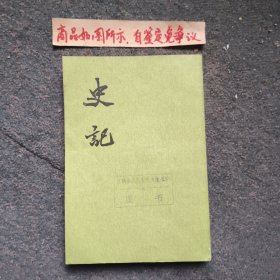 商品如图所示，自鉴定免争议
史
記
图书